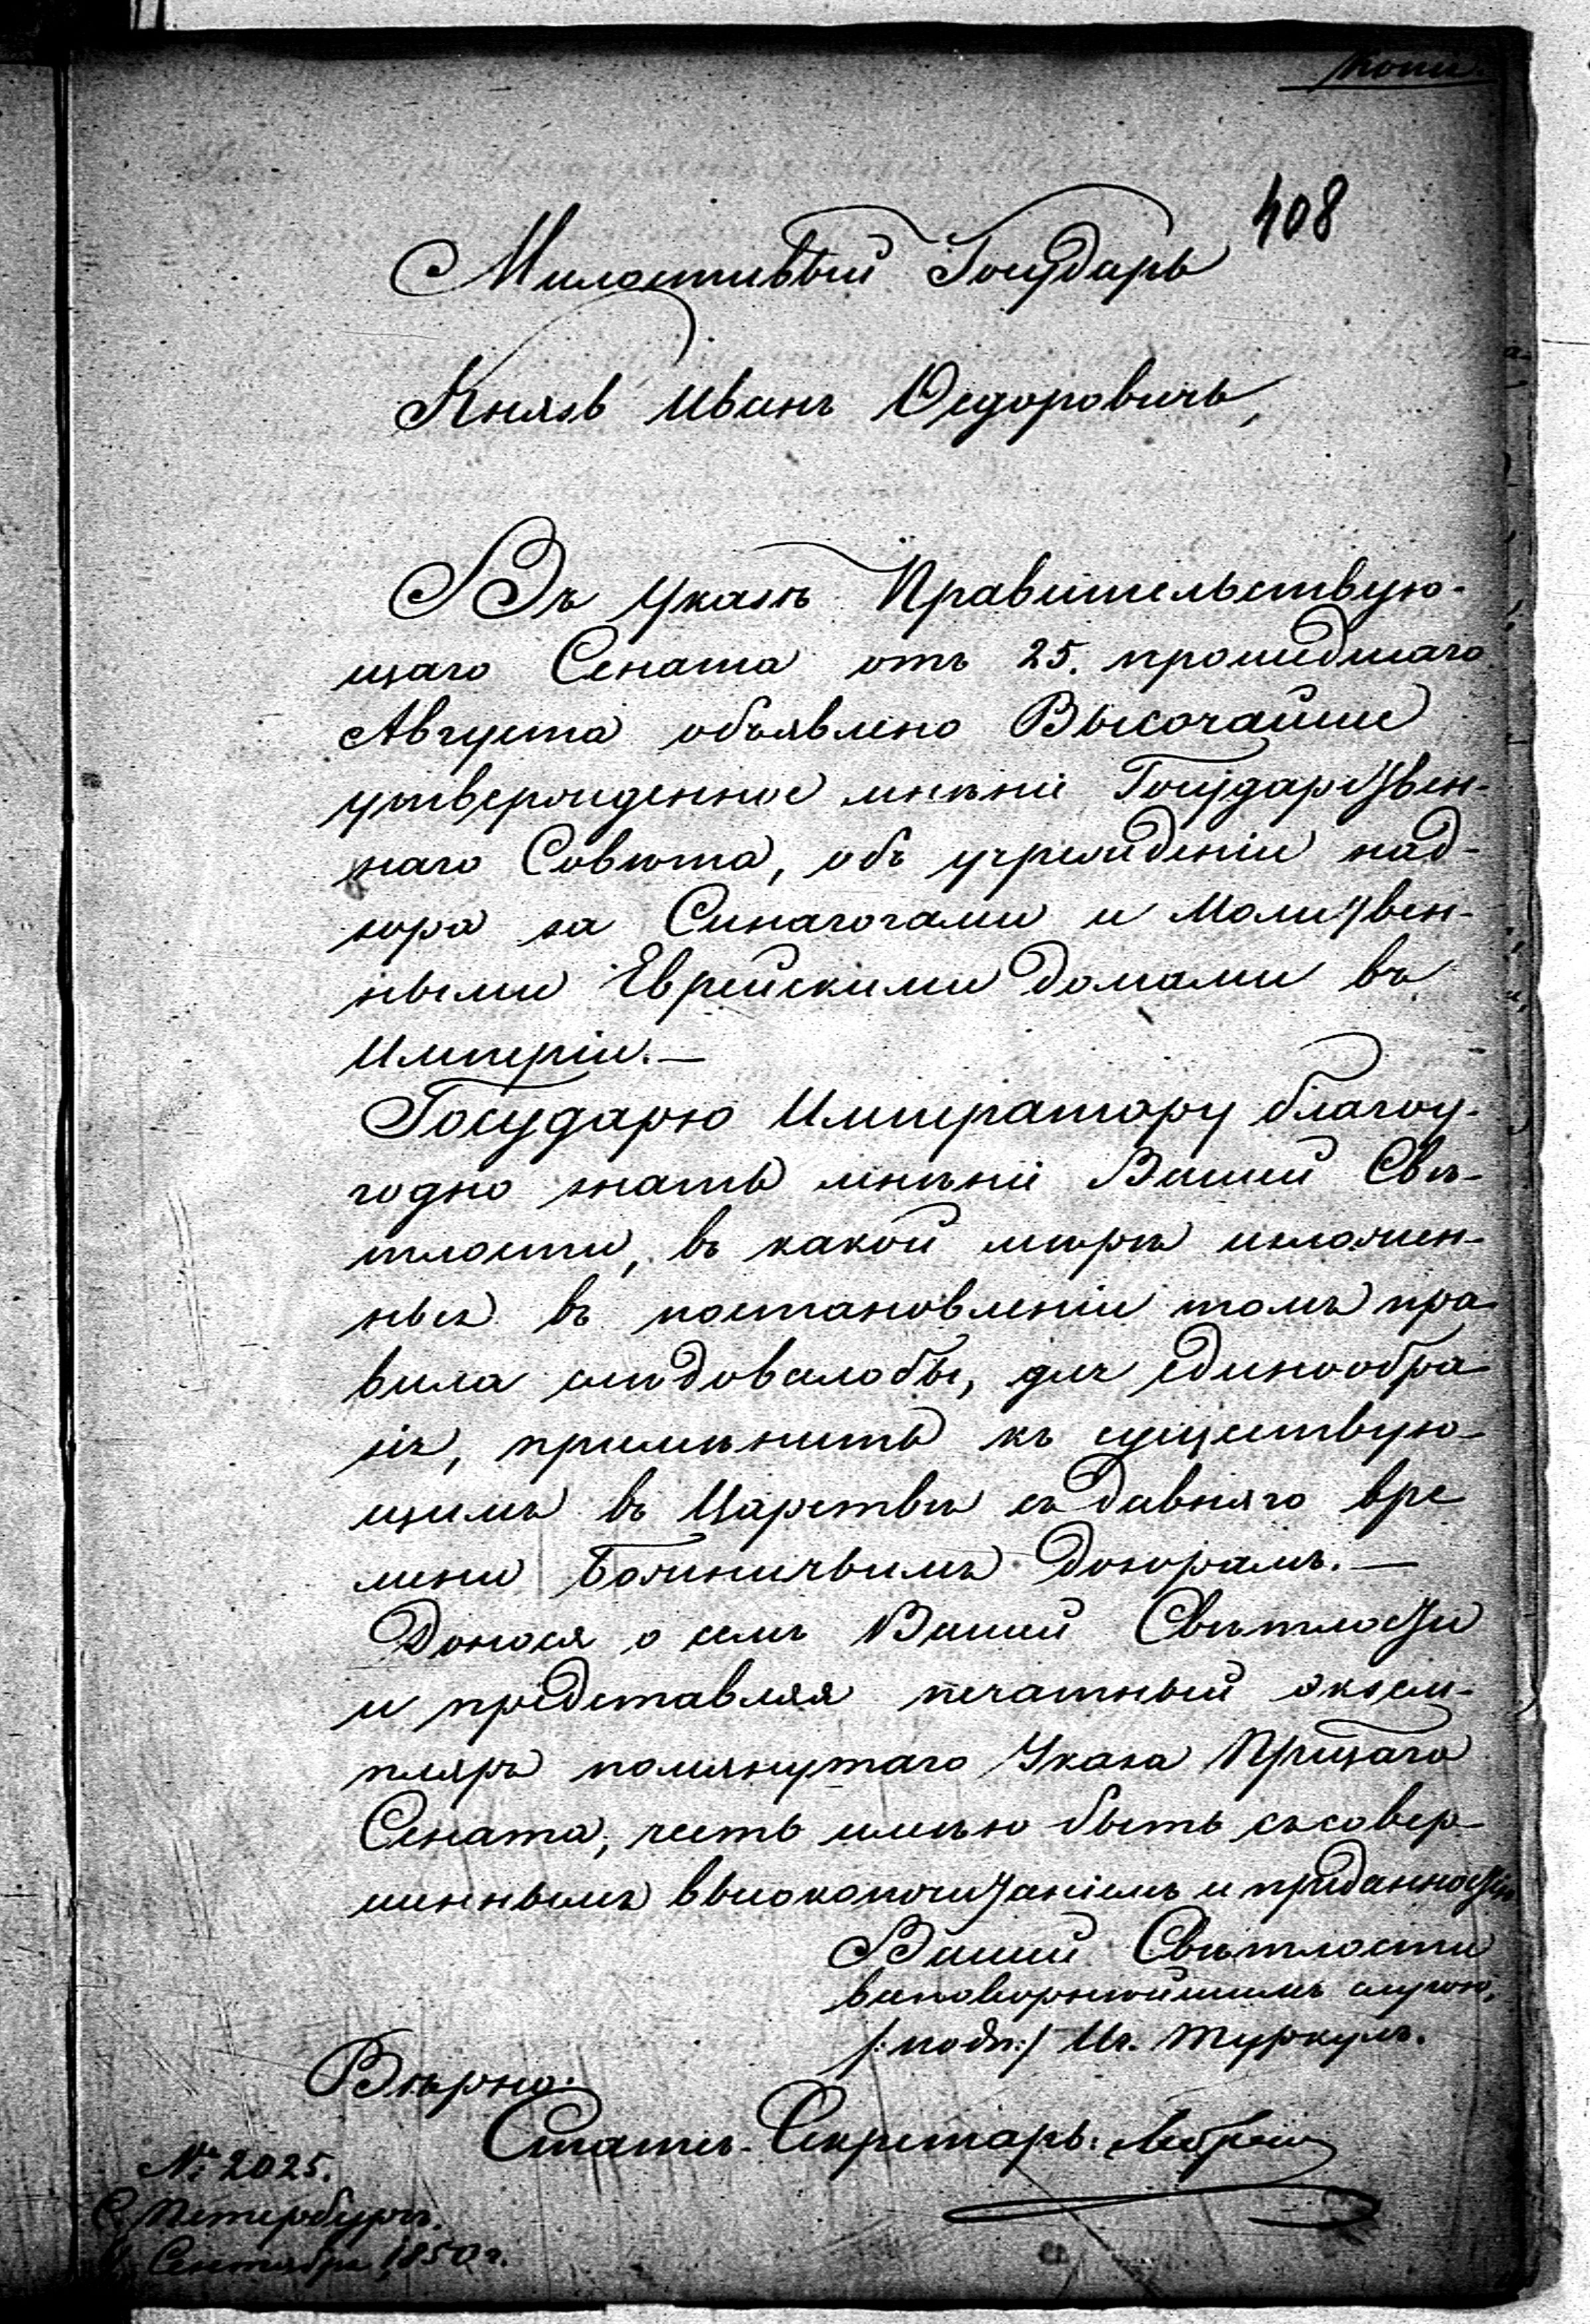 Копія.
408
Милостивый Государь
Князь Иванъ Ѳедоровичь,
Въ Указѣ Правительствую-
щаго Сената отъ 25. прошедшаго
Августа объявлено Высочайше
утвержденное мнѣніе Государствен-
наго Совѣта, объ учрежденіи над-
зора за Синагогами и Молитвен-
ными Еврейскими домами въ
Имперіи.—
Государю Императору благоу-
годно знать мнѣніе Вашей Свѣ-
тлости, въ какой мѣрѣ изложен-
ныя въ постановленіи томъ пра
вила слѣдовалобы, для единообра
зія, примѣнить къ существую-
щимъ въ Царствѣ съ давняго вре
мени Божничьимъ дозорамъ.—
Донося о семъ Вашей Свѣтлости
и представляя печатный экзем-
пляръ помянутаго Указа Прщаго
Сената, честь имѣю быть съ совер-
шеннымъ высокопочитаніемъ и преданностію
Вашей Свѣтлости
всепокорнѣйшимъ слугою,
/:подп:/ Иг. Туркулъ.
Вѣрно:
Статсъ-Секретарь:
№ 2025.
С. Петербургъ.
Сентября 1850 г.